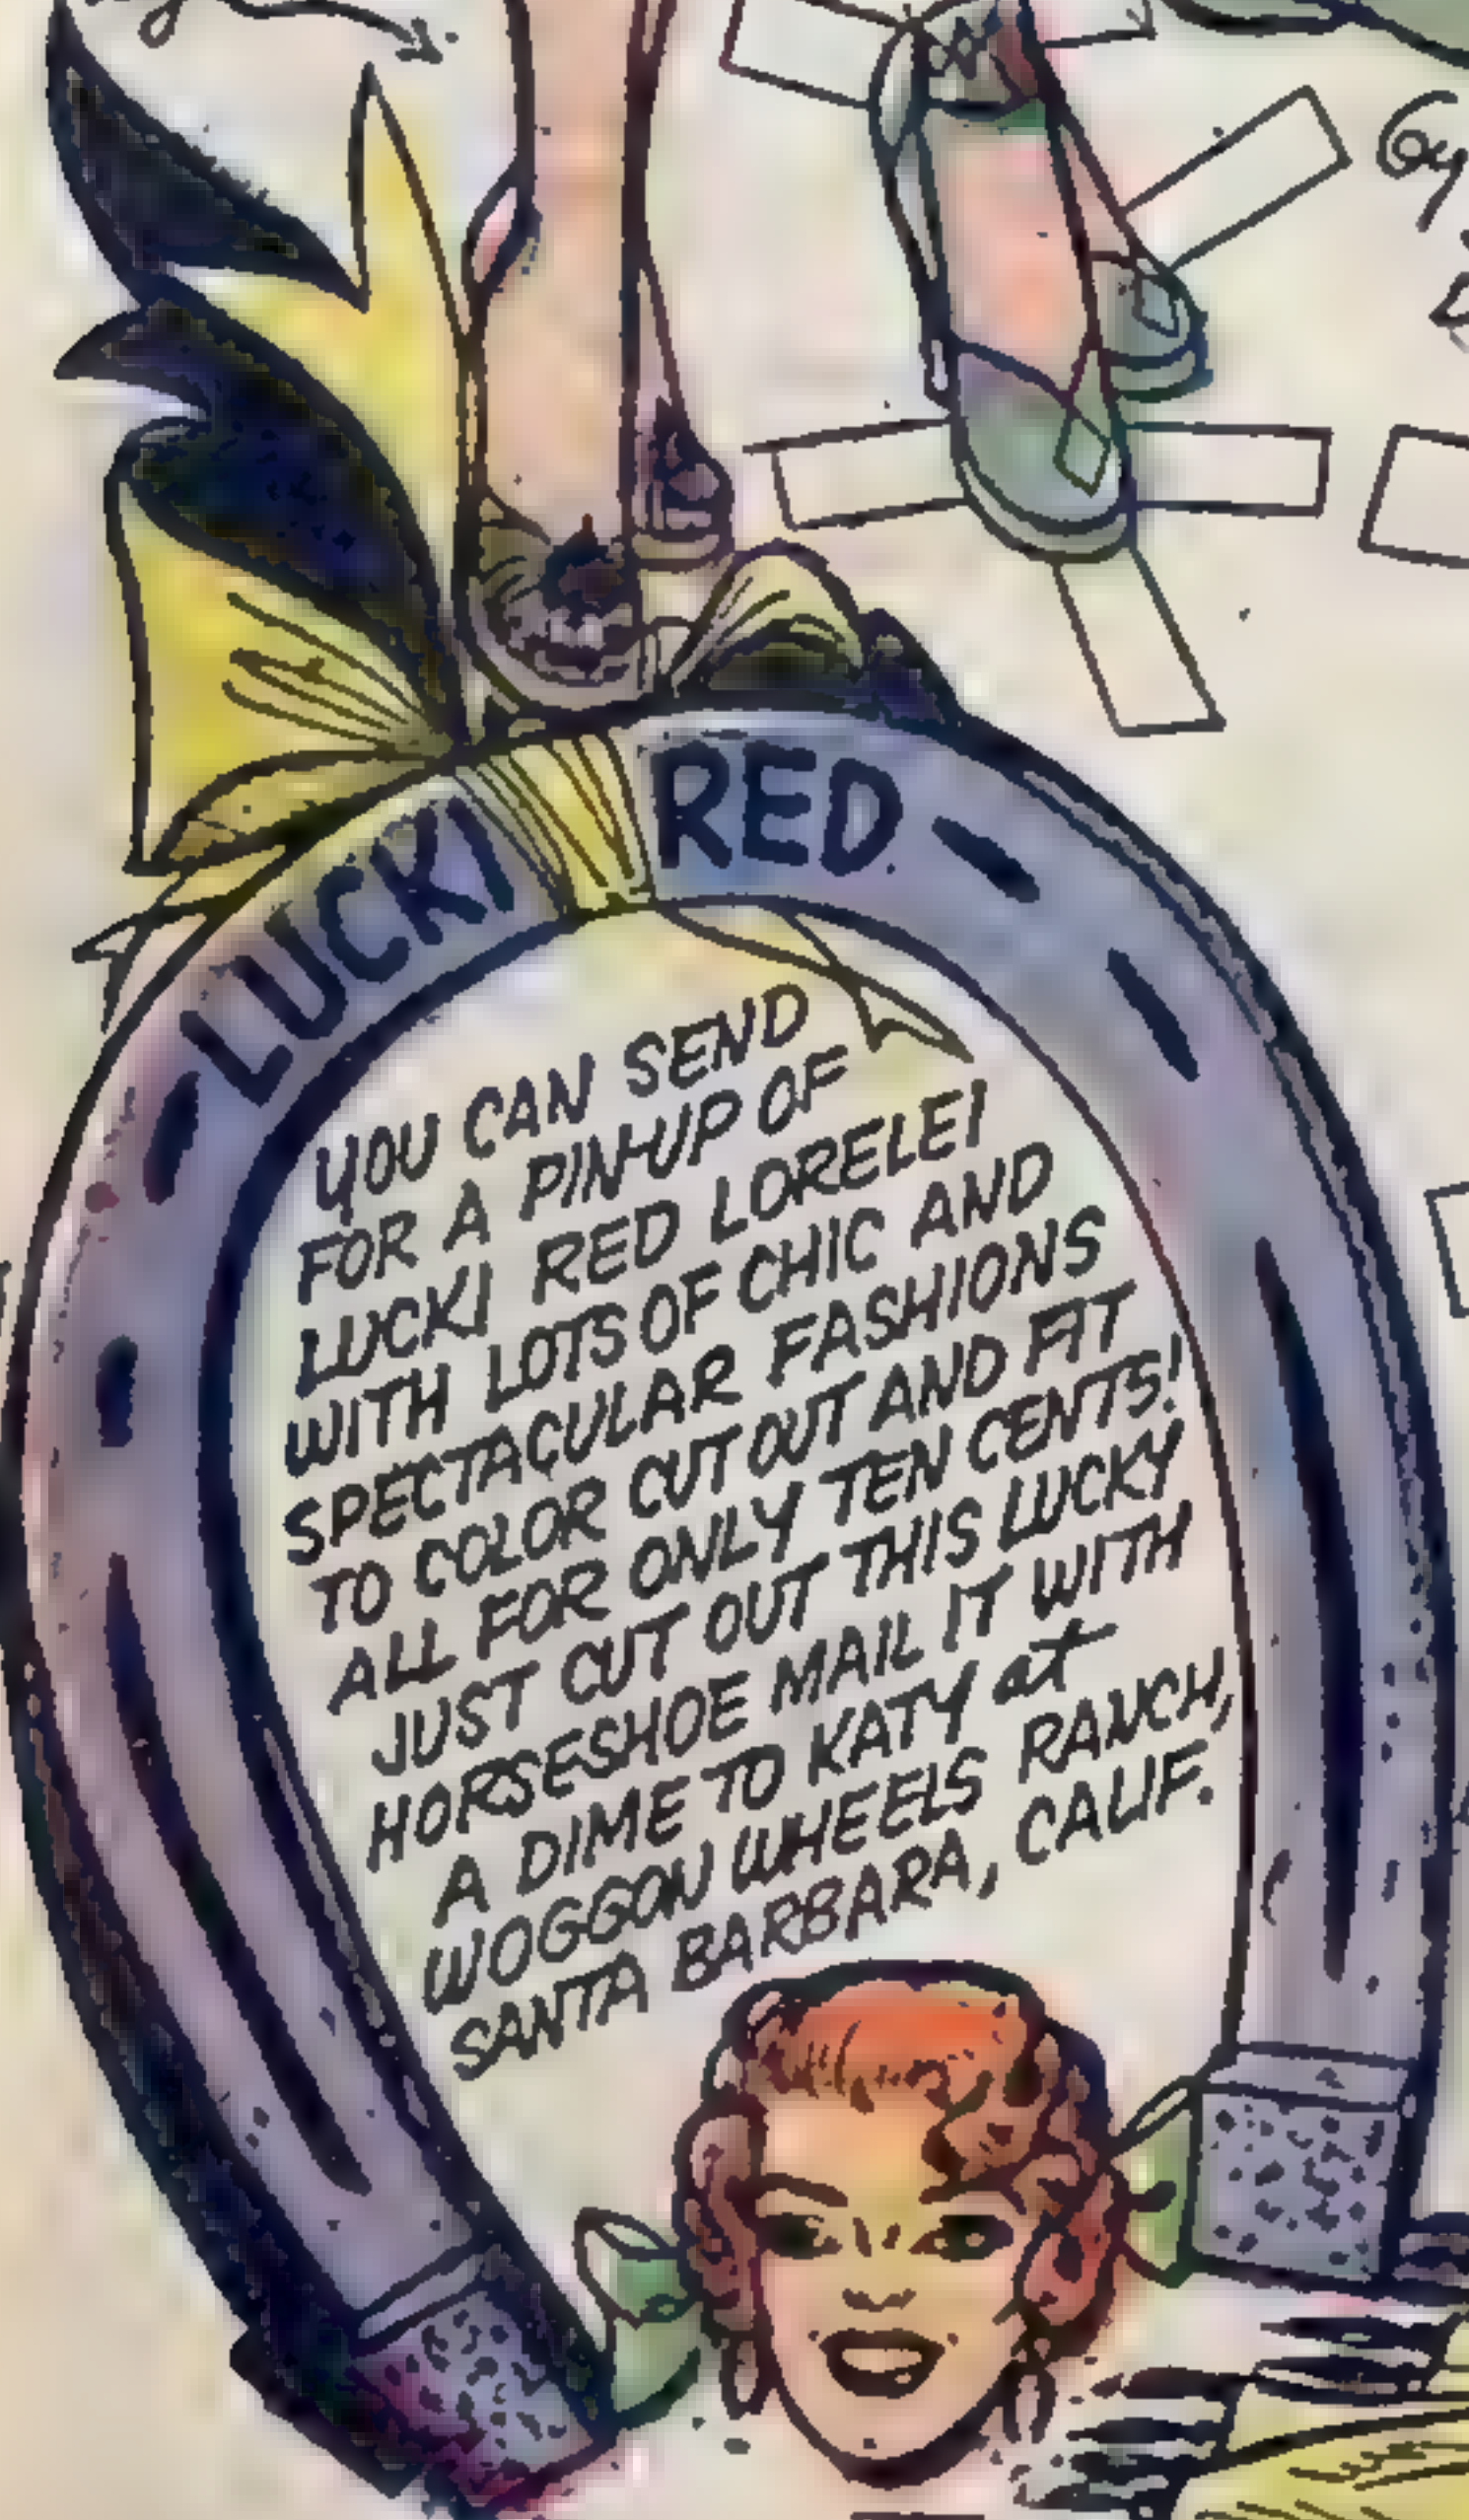 Gy
LUCKI RED.
YOU CAN SEND
FOR A PIN-UP OF
LUCKI RED LORELEI
WITH LOTS OF CHIC AND
SPECTACULAR FASHIONS
TO COLOR CUT OUT AND FIT
ALL FOR ONLY TEN CENTS!
JUST CUT OUT THIS LUCKY
HORSESHOE MAIL IT WITH
A DIME TO KATY at
WOGGON WHEELS RANCH,
SANTA BARBARA, CALIF.